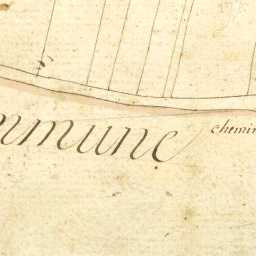 mmune
chemin